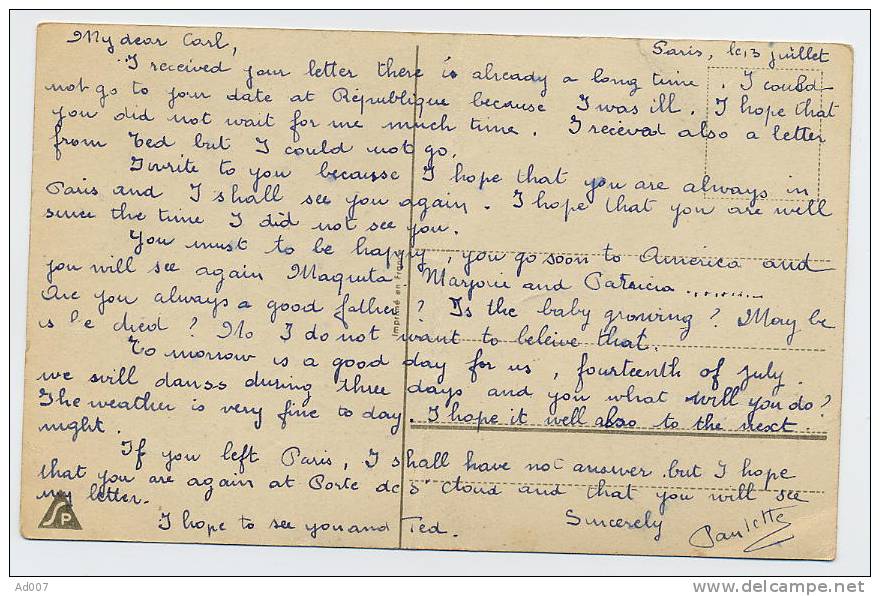 My dear Carl,
Paris, le 13 juillet
I received your letter there is already a long time. I could
not go to your date at République because I was ill. I hope that
you did not wait for me much time. I received also a letter
from Ted but I could not go.
I write to you because I hope that you are always in
Paris and I shall see you again. I hope that you are well
since the time I did not see you.
You must to be happy, you go soon to America and
you will see again Maquita, Marjorie and Patricia .........
Are you always a good father? Is the baby growing? May be
is he died? No I do not want to beleive that.
To morrow is a good day for us, fourteenth of july.
we will danss during three days and you what will you do?
The weather is very fine to day. I hope it well also to the next
night.
If you left Paris, I shall have not answer but I hope
that you are again at Porte de St Cloud and that you will see
my letter.
I hope to see you and Ted.
Sincerely
Paulette
Imprimé en France
SP
Ad007
www.delcampe.net